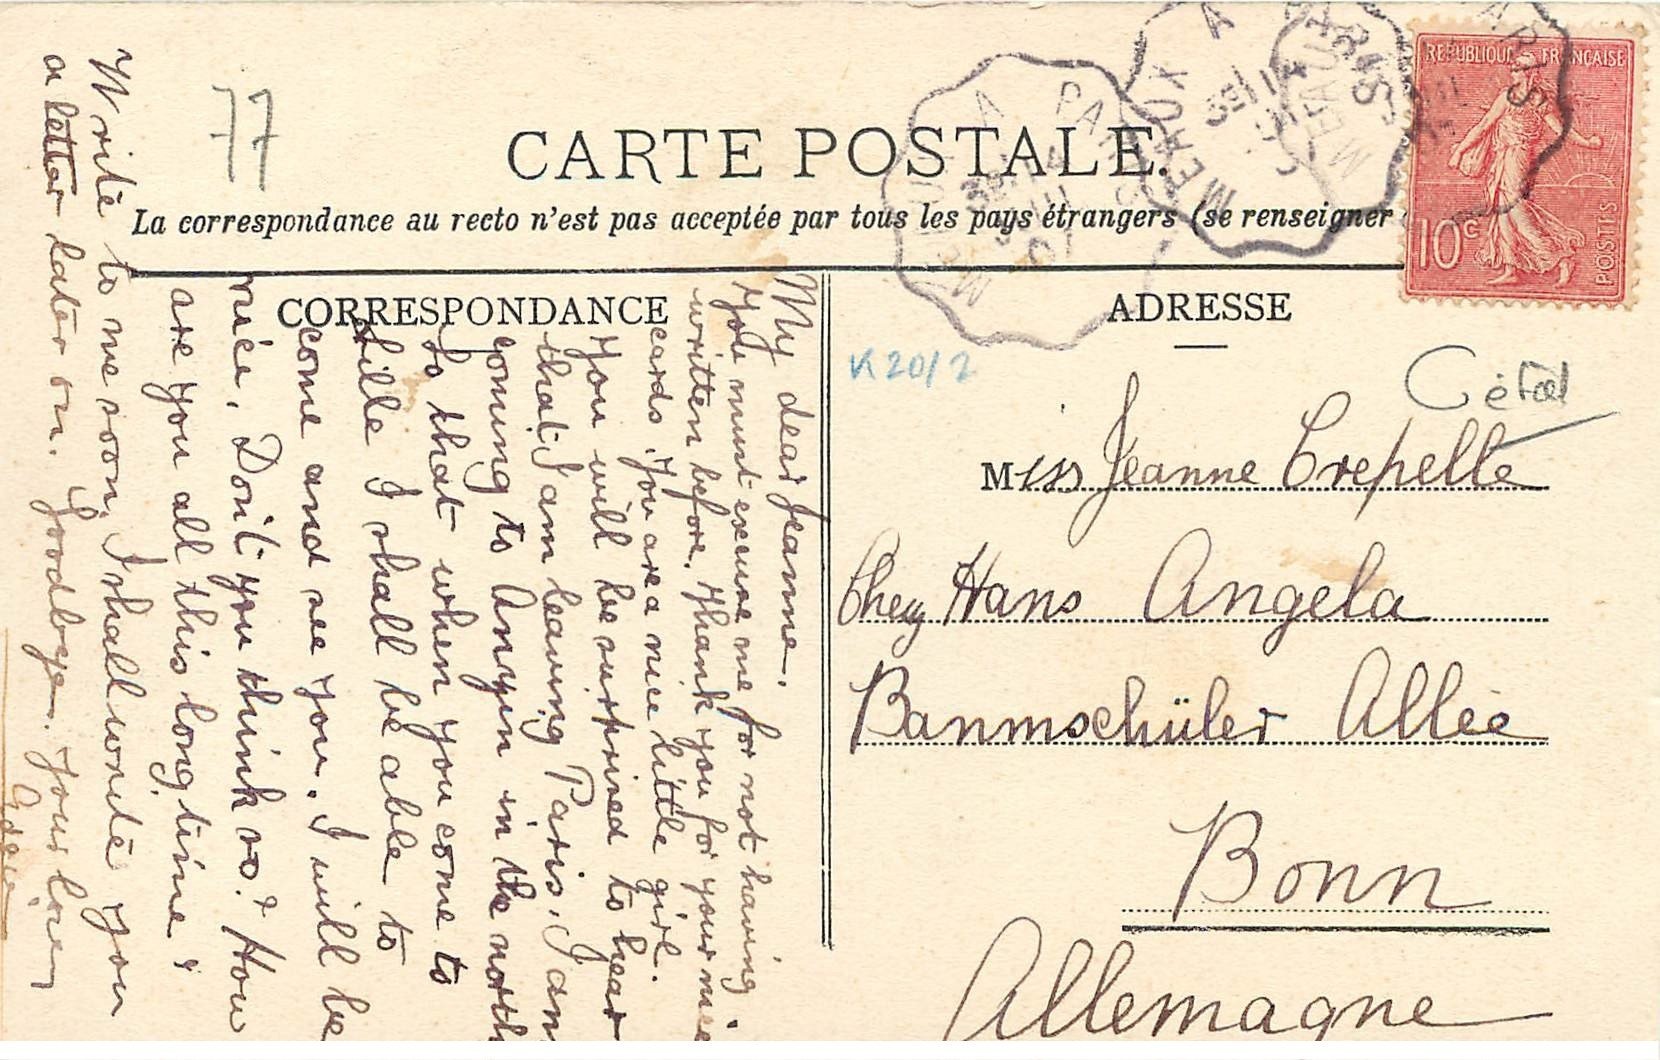 77
CARTE POSTALE.
La correspondance au recto n'est pas acceptée par tous les pays étrangers (se renseigner
REPUBLIQUE FRANÇAISE
10c
POSTES
MEAUX A PARIS
MEAUX A PARIS
CORRESPONDANCE
My dear Jeanne.
You must excuse me for not having
written before. Thank you for your nice
cards. You are a nice little girl.
You will be surprised to hear
that I am leaving Paris. I am
coming to Anzin in the north
So that when you come to
Lille I shall be able to
come and see you. I will be
nice. Don't you think so? How
are you all this long time?
Write to me soon, I shall write you
a letter later on. Goodbye. Your
ADRESSE
K 20/2
Miss Jeanne Crepelle
Chez Hans Angela
Banmschüler Allée
Bonn
Allemagne